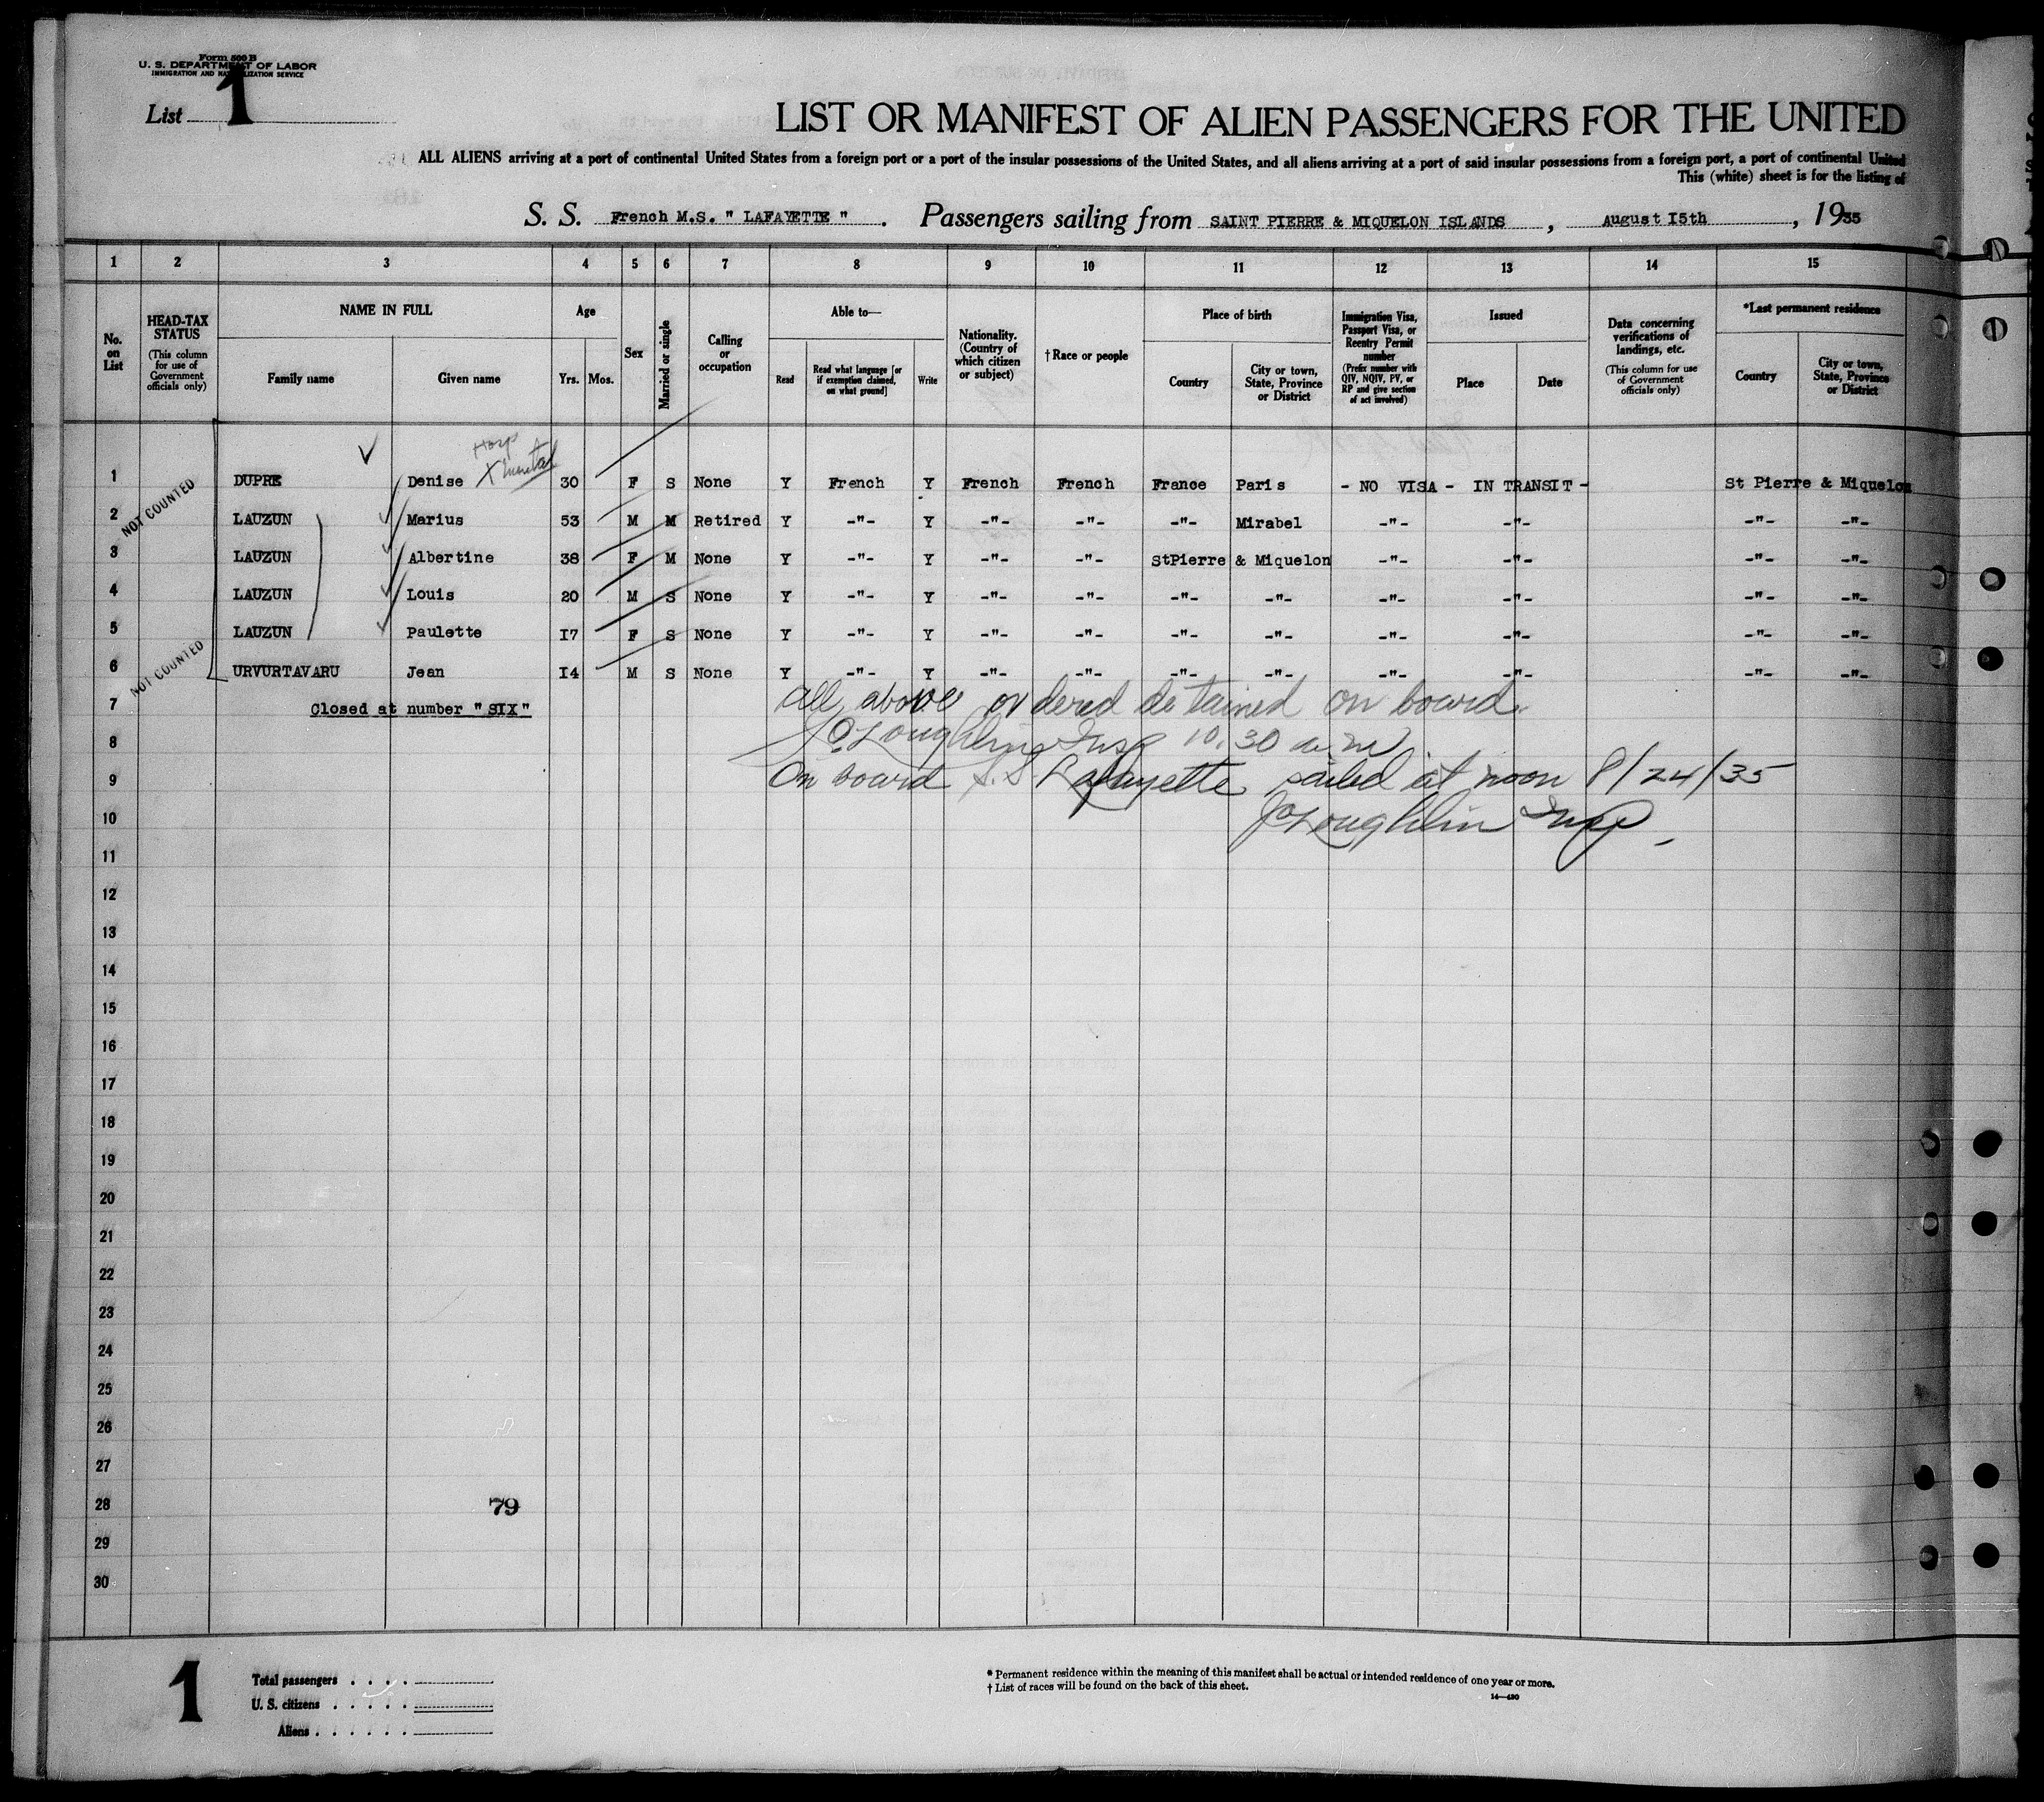 Form 500 B
U. S. DEPARTMENT OF LABOR
IMMIGRATION AND NATURALIZATION SERVICE
List 1
LIST OR MANIFEST OF ALIEN PASSENGERS FOR THE UNITED
ALL ALIENS arriving at a port of continental United States from a foreign port or a port of the insular possessions of the United States, and all aliens arriving at a port of said insular possessions from a foreign port, a port of continental United
This (white) sheet is for the listing of
S. S. French M.S. " LAFAYETTE " . Passengers sailing from SAINT PIERRE & MIQUELON ISLANDS , August I5th , 1935
1 2 3 4 5 6 7 8 9 10 11 12 13 14 15
No. on List
HEAD-TAX STATUS (This column for use of Government officials only)
NAME IN FULL
Family name Given name
Age
Yrs. Mos.
Sex
Married or single
Calling or occupation
Able to—
Read
Read what language [or if exemption claimed, on what ground]
Write
Nationality. (Country of which citizen or subject)
† Race or people
Place of birth
Country
City or town, State, Province or District
Immigration Visa, Passport Visa, or Reentry Permit number (Prefix number with QIV, NQIV, PV, or RP and give section of act involved)
Issued
Place Date
Data concerning verifications of landings, etc. (This column for use of Government officials only)
*Last permanent residence
Country
City or town, State, Province or District
Hosp
X mental
NOT COUNTED
1 DUPRE Denise 30 F S None Y French Y French French France Paris - NO VISA - IN TRANSIT - St Pierre & Miquelon
2 LAUZUN Marius 53 M M Retired Y -"- Y -"- -"- -"- Mirabel -"- -"- -"- -"-
3 LAUZUN Albertine 38 F M None Y -"- Y -"- -"- StPierre & Miquelon -"- -"- -"- -"-
4 LAUZUN Louis 20 M S None Y -"- Y -"- -"- -"- -"- -"- -"- -"- -"-
5 LAUZUN Paulette I7 F S None Y -"- Y -"- -"- -"- -"- -"- -"- -"- -"-
NOT COUNTED
6 URVURTAVARU Jean I4 M S None Y -"- Y -"- -"- -"- -"- -"- -"- -"- -"-
7 Closed at number " SIX " all above ordered detained on board.
8 J O'Loughlin Insp 10.30 a.m
9 On board S.S. Lafayette sailed at noon 8/24/35
10 J O'Loughlin Insp
11
12
13
14
15
16
17
18
19
20
21
22
23
24
25
26
27
28 79
29
30
1
Total passengers . . . .
U. S. citizens . . . . .
Aliens . . . . . .
* Permanent residence within the meaning of this manifest shall be actual or intended residence of one year or more.
† List of races will be found on the back of this sheet.
14—430